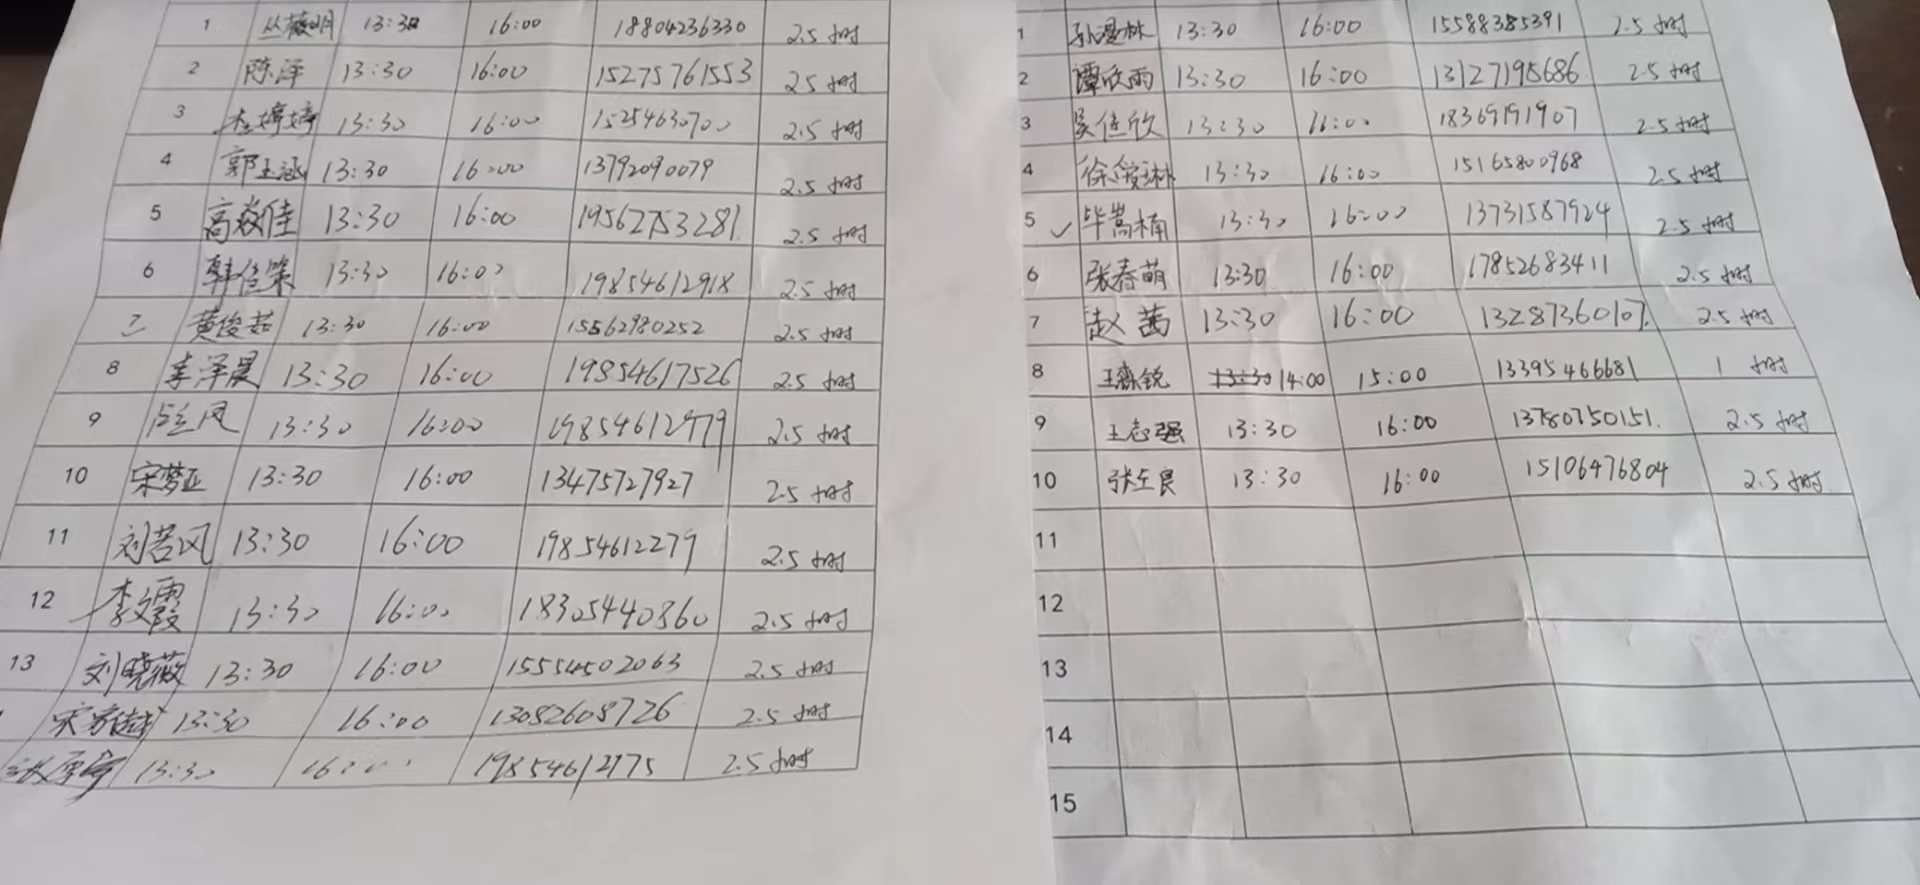 1 丛薇明 13:30 16:00 18804236330 2.5小时
2 陈泽 13:30 16:00 15275761553 2.5小时
3 杜婷婷 13:30 16:00 15254630700 2.5小时
4 郭玉涵 13:30 16:00 13792090079 2.5小时
5 高焱佳 13:30 16:00 19562753281 2.5小时
6 韩佳策 13:30 16:00 19854612918 2.5小时
7 黄俊茹 13:30 16:00 15562980252 2.5小时
8 李泽晨 13:30 16:00 19854617526 2.5小时
9 13:30 16:00 19854612979 2.5小时
10 宋梦亚 13:30 16:00 13475727927 2.5小时
11 刘若风 13:30 16:00 19854612279 2.5小时
12 李文霞 13:30 16:00 18305440860 2.5小时
13 刘晓薇 13:30 16:00 15554502063 2.5小时
宋家越 13:30 16:00 13082608726 2.5小时
13:30 16:00 19854612775 2.5小时
1 孙漫林 13:30 16:00 15588385391 2.5小时
2 谭欣雨 13:30 16:00 13127195686 2.5小时
3 吴佳欣 13:30 16:00 18369191907 2.5小时
4 徐爱琳 13:30 16:00 15165800968 2.5小时
5 ✓ 毕嵩楠 13:30 16:00 13731587924 2.5小时
6 张春萌 13:30 16:00 17852683411 2.5小时
7 赵茜 13:30 16:00 13287360107. 2.5小时
8 王森锐 13:30 14:00 15:00 13395466681 1小时
9 王志强 13:30 16:00 13780750151. 2.5小时
10 张左良 13:30 16:00 15106476804 2.5小时
11
12
13
14
15